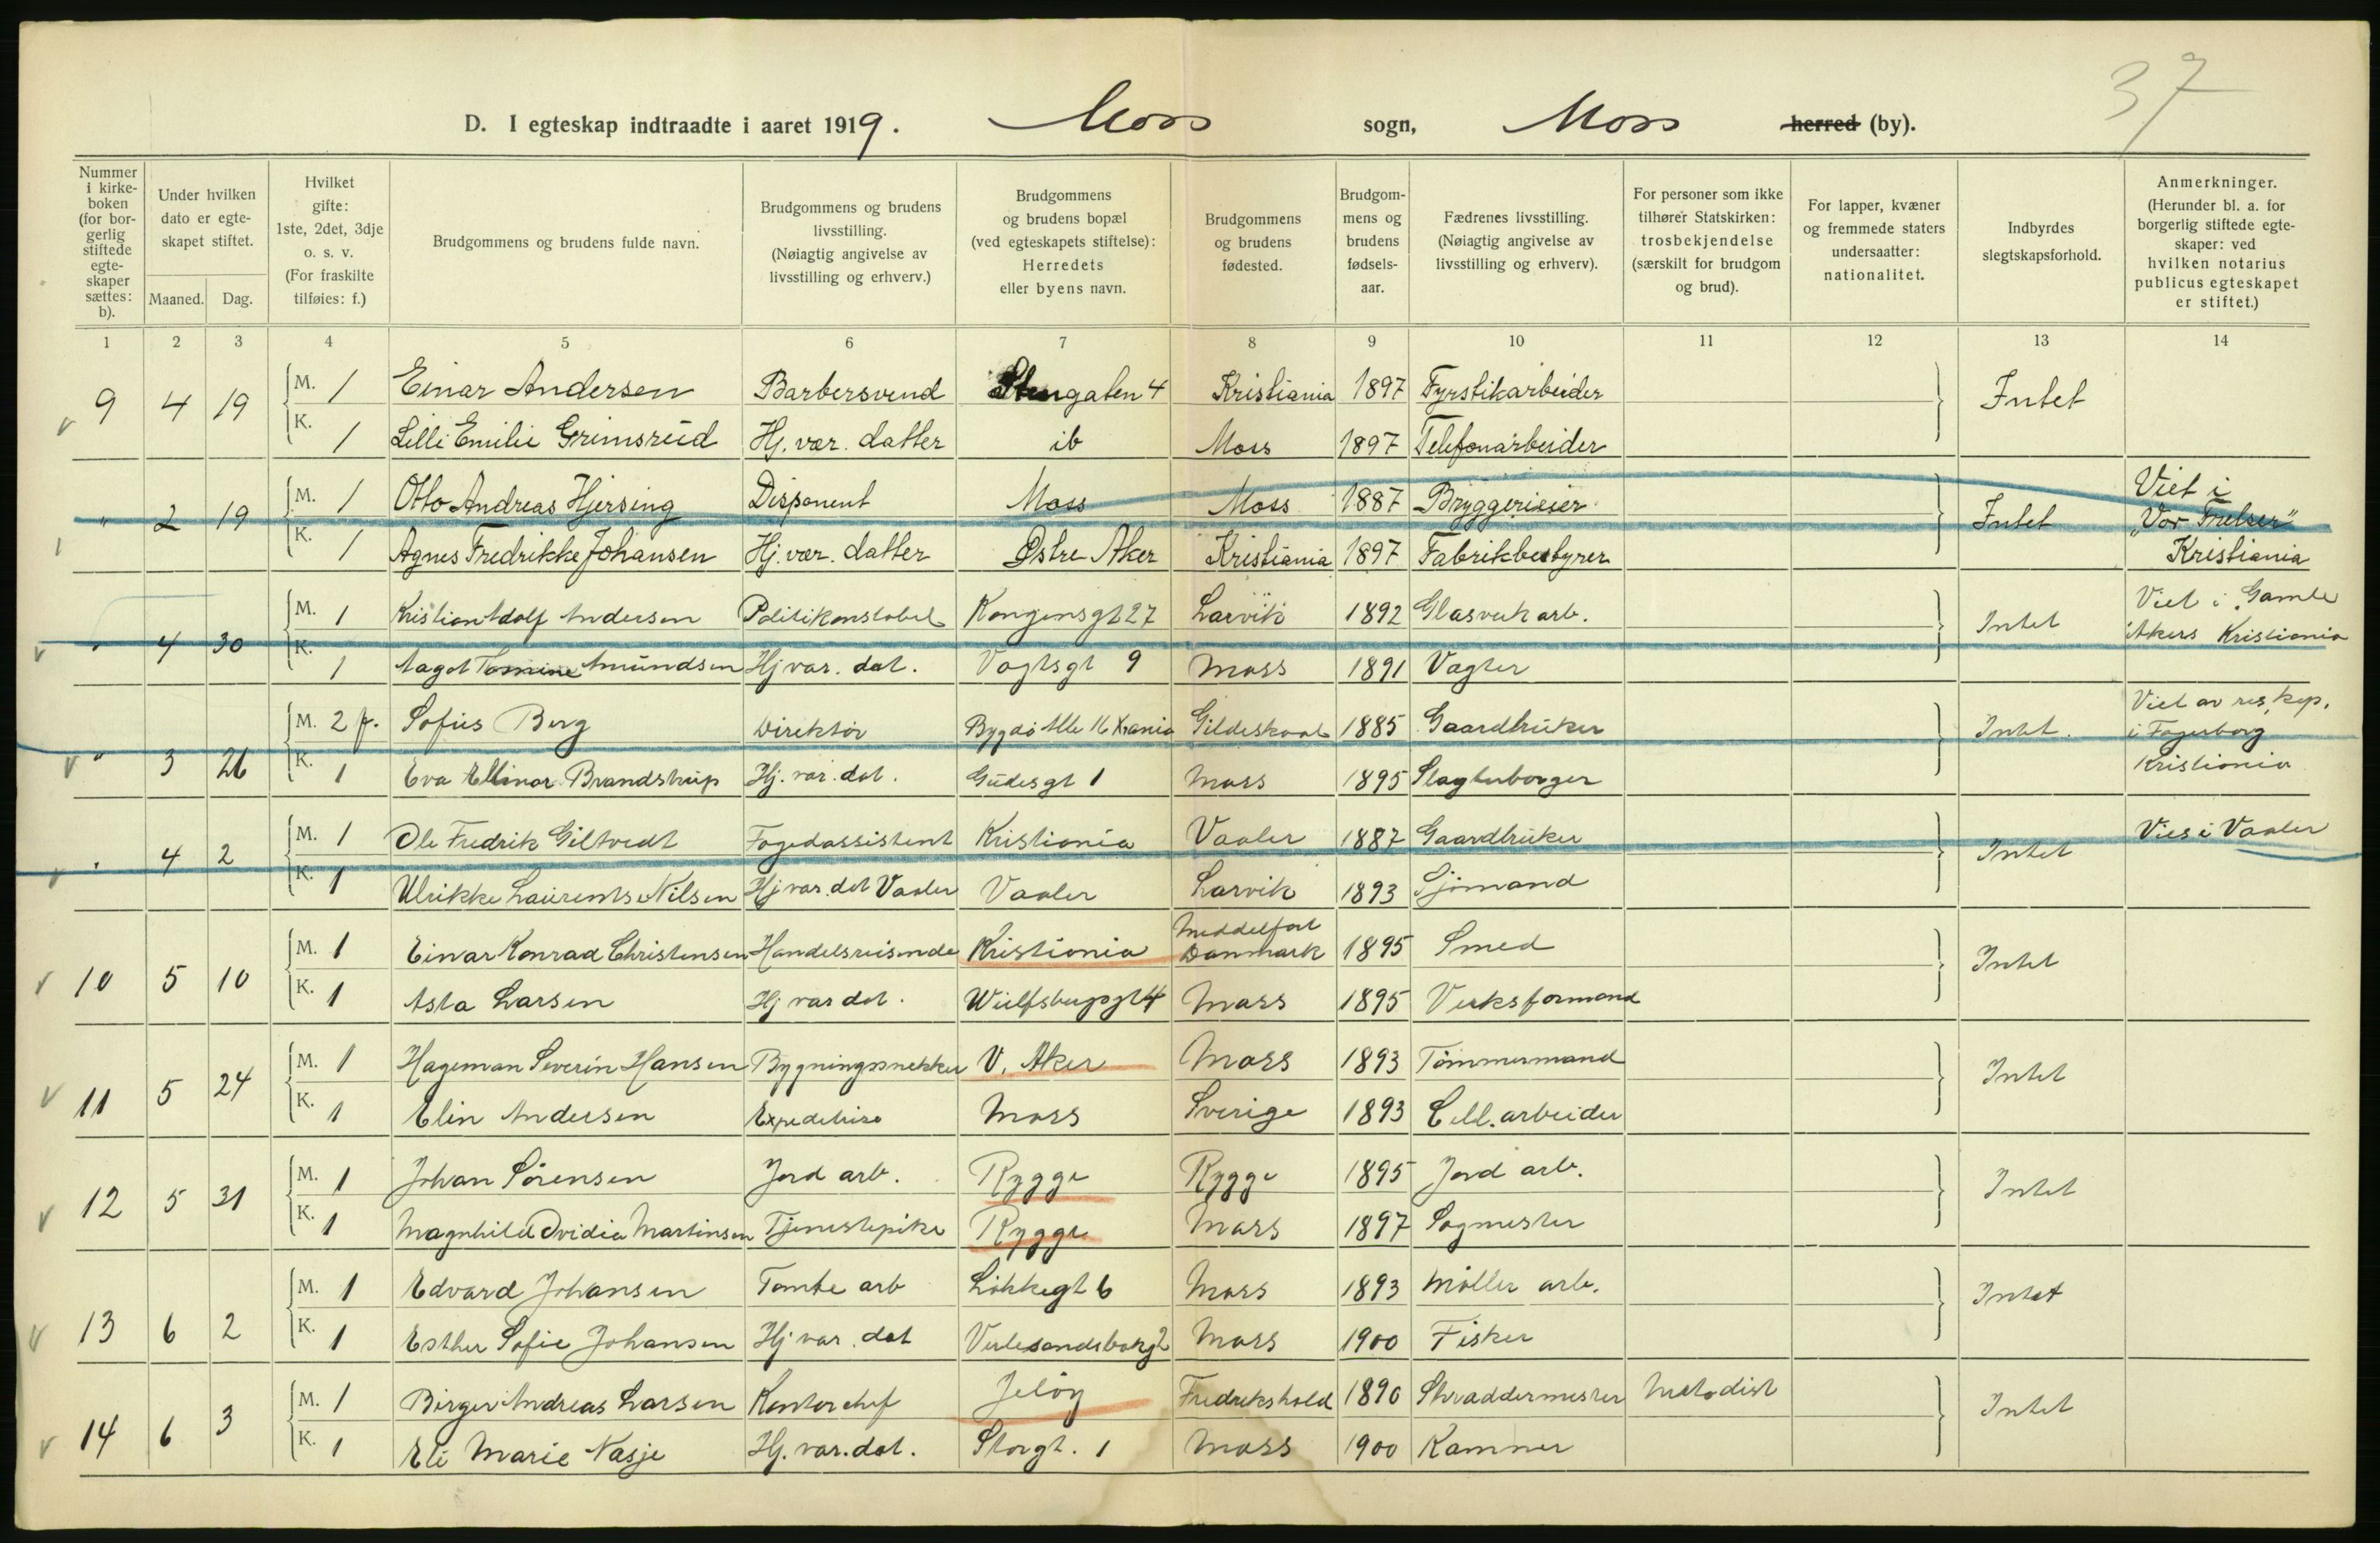 37
D. I egteskap indtraadte i aaret 1919. Moss sogn, Moss herred (by).
Nummer i kirkeboken (for borgerlig stiftede egteskaper sættes: b).
Under hvilken dato er egteskapet stiftet.
Maaned. Dag.
Hvilket gifte: 1ste, 2det, 3dje o. s. v. (For fraskilte tilføies: f.)
Brudgommens og brudens fulde navn.
Brudgommens og brudens livsstilling. (Nøiagtig angivelse av livsstilling og erhverv.)
Brudgommens og brudens bopæl (ved egteskapets stiftelse): Herredets eller byens navn.
Brudgommens og brudens fødested.
Brudgommens og brudens fødselsaar.
Fædrenes livsstilling. (Nøiagtig angivelse av livsstilling og erhverv).
For personer som ikke tilhører Statskirken: trosbekjendelse (særskilt for brudgom og brud).
For lapper, kvæner og fremmede staters undersaatter: nationalitet.
Indbyrdes slegtskapsforhold.
Anmerkninger. (Herunder bl. a. for borgerlig stiftede egteskaper: ved hvilken notarius publicus egteskapet er stiftet.)
1 2 3 4 5 6 7 8 9 10 11 12 13 14
9 4 19 M. 1 Einar Andersen Barbersvend Stengaten 4 Kristiania 1897 Fyrstikarbeider Intet
K. 1 Lilli Emilie Grimsrud Hj. vær. datter ib Moss 1897 Telefonarbeider
" 2 19 M. 1 Otto Andreas Hjersing Disponent Moss Moss 1887 Bryggerieier Intet Viet i "Vor Frelser"
K. 1 Agnes Fredrikke Johansen Hj. vær. datter Østre Aker Kristiania 1897 Fabrikbestyrer Kristiania
" 4 30 M. 1 Kristian Adolf Andersen Politikonstabel Kongensgt 27 Larvik 1892 Glasverk arb. Intet Viet i Gamle Akers Kristiania
K. 1 Aagot Tomine Amundsen Hj vær. dat. Vogtsgt 9 Moss 1891 Vagter
" 3 26 M. 2 f. Sofus Berg Direktør Bygdø Alle 16 Krania Gildeskaal 1885 Gaardbruker Intet. Viet av res. kap. i Fagerborg
K. 1 Eva Ellinor Brandstrup Hj. vær. dat. Gudesgt 1 Moss 1895 Slagterborger Kristiania
" 4 2 M. 1 Ole Fredrik Giltvedt Fogedassistent Kristiania Vaaler 1887 Gaardbruker Intet Vies i Vaaler
K. 1 Ulrikke Laurentse Nilsen Hj vær. dat Vaaler Vaaler Larvik 1893 Sjömand
10 5 10 M. 1 Einar Konrad Christensen Handelsreisende Kristiania Meddelfart Danmark 1895 Smed Intet
K. 1 Asta Larsen Hj vær dat. Wulfsbergsgt 4 Moss 1895 Verksformand
11 5 24 M. 1 Hageman Severin Hansen Bygningssnekker V. Aker Moss 1893 Tömmermand Intet
K. 1 Elin Andersen Expeditrise Moss Sverige 1893 Cell. arbeider
12 5 31 M. 1 Johan Sörensen Jord arb. Rygge Rygge 1895 Jord arb. Intet
K. 1 Magnhild Ovidia Martinsen Tjenestepike Rygge Moss 1897 Sagmester
13 6 2 M. 1 Edvard Johansen Tomte arb Lökkegt 6 Moss 1893 Möller arb. Intet
K. 1 Esther Sofie Johansen Hj vær. dat Verlesandsbakg 2 Moss 1900 Fisker
14 6 3 M. 1 Birger Andreas Larsen Kontorchef Jelöy Fredrikshald 1890 Skraddermester Metodist Intet
K. 1 Eli Marie Nasje Hj. vær. dat. Storgt. 1 Moss 1900 Kamner